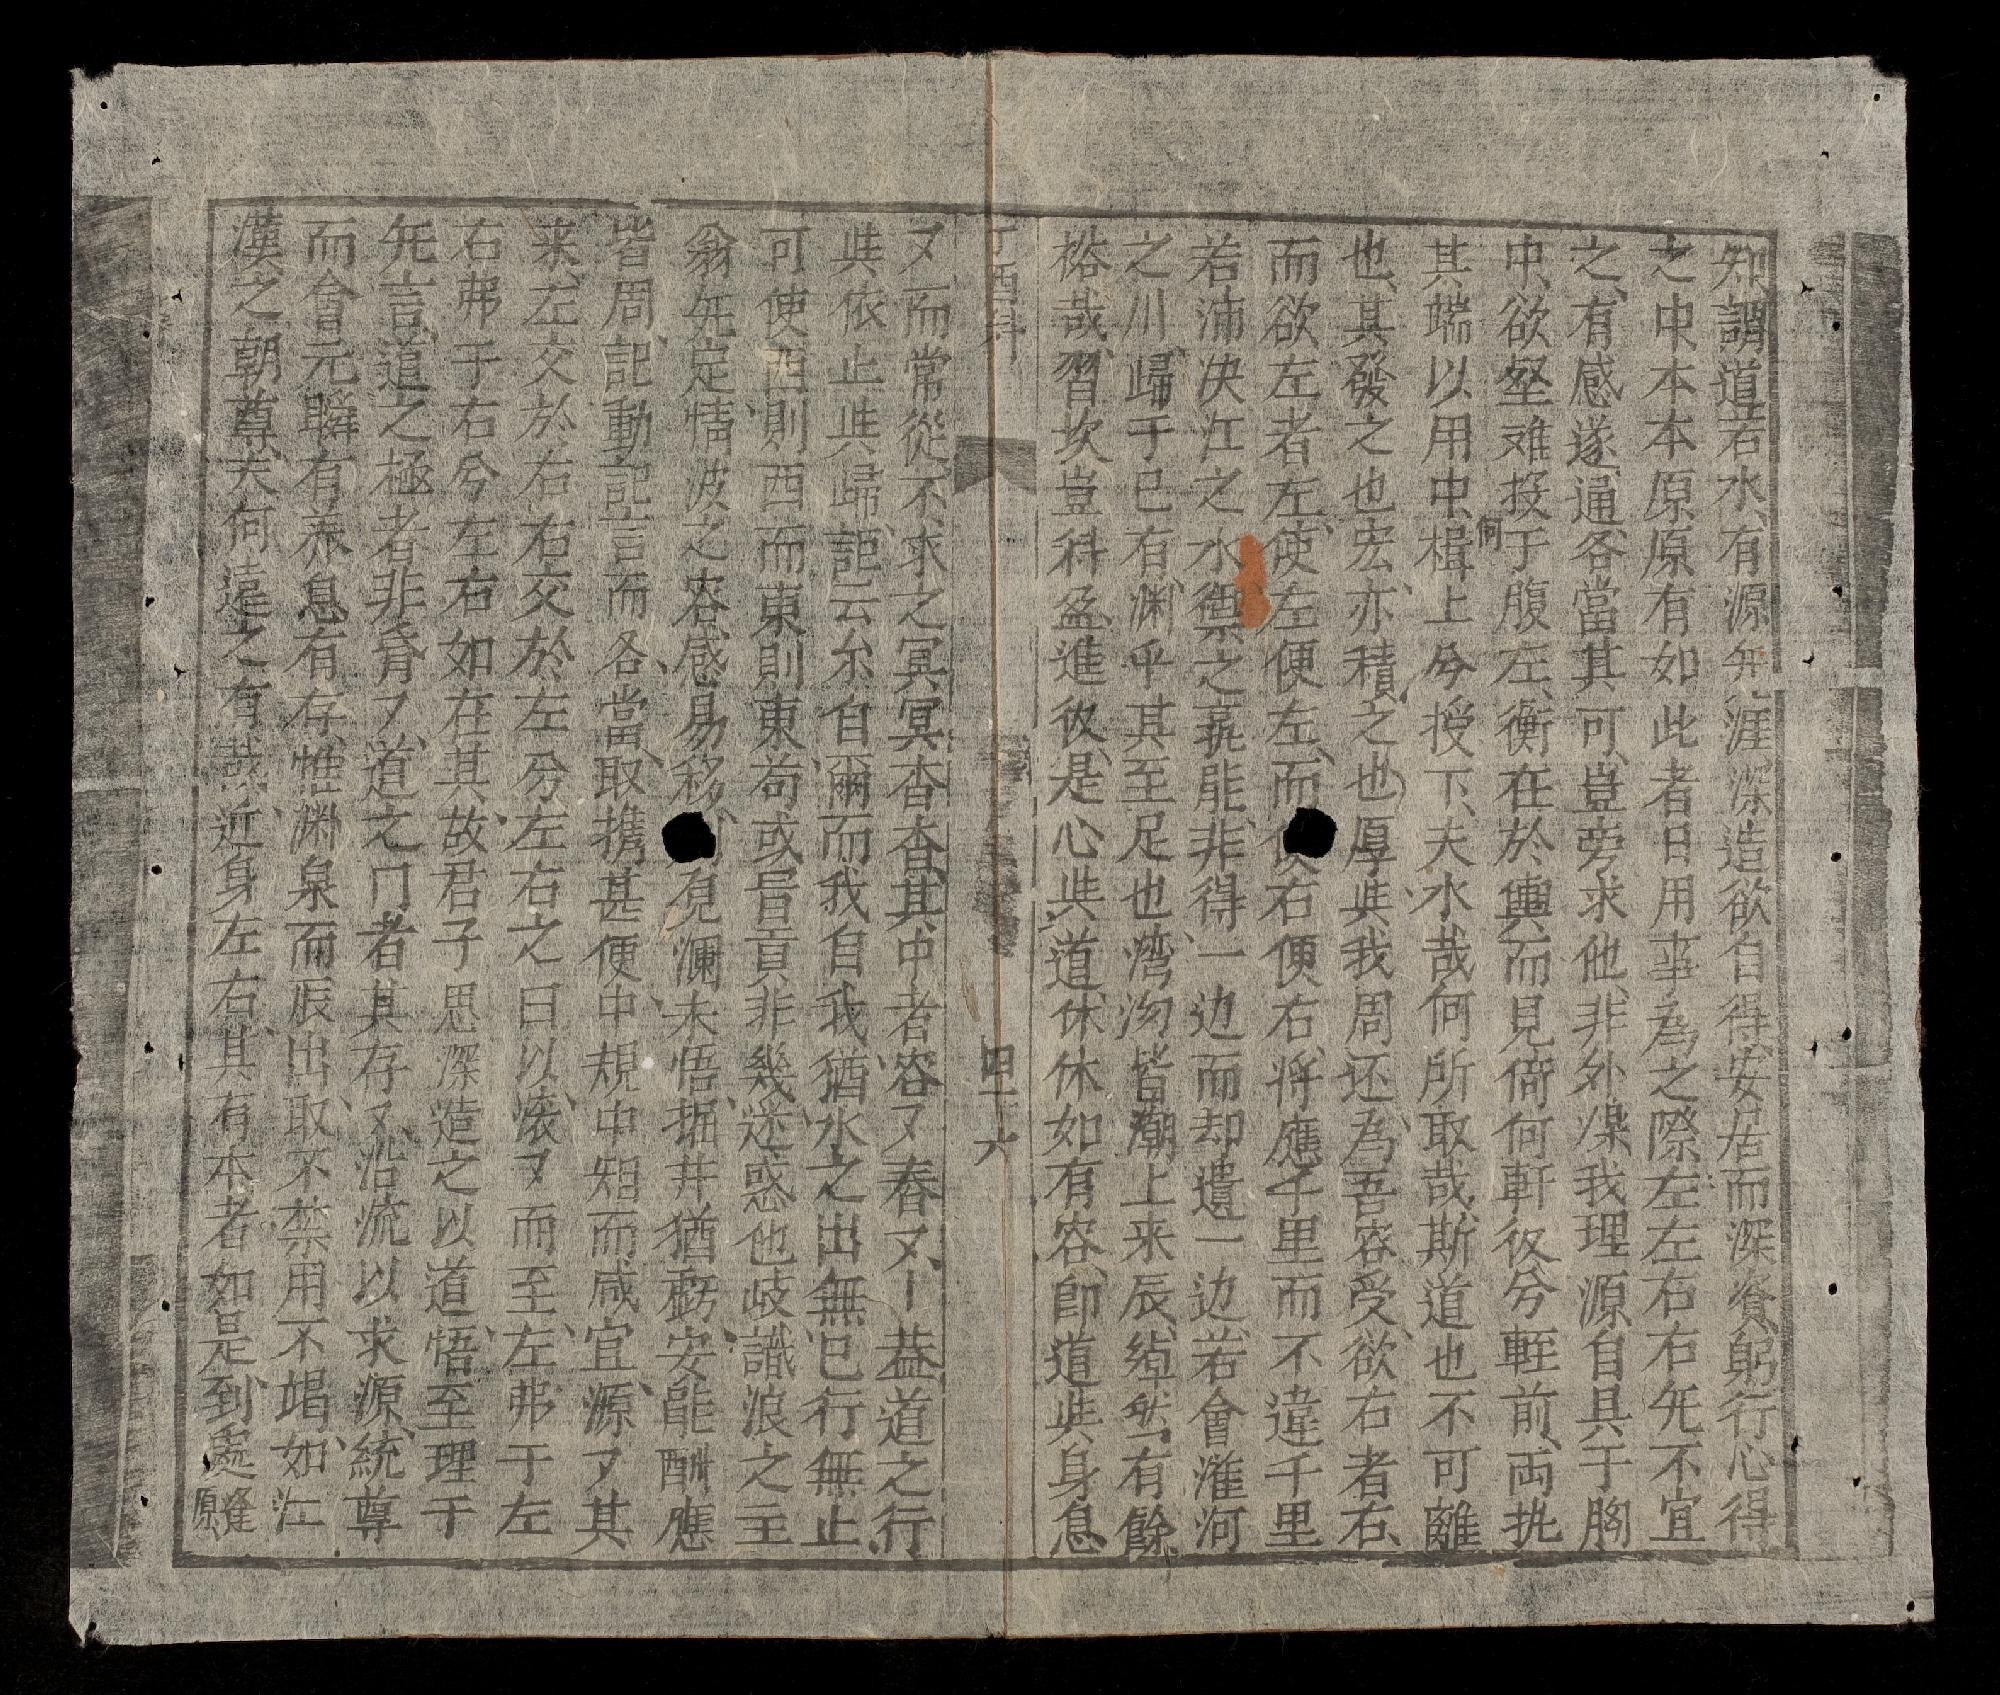 知謂道若水有源無涯深造欲自得安居而深資躬行心得
之中本本原原有如此者日用事為之際左左右右無不宜
之有感遂通各當其可豈旁求他非外渠我理源自具于胸
中欲堅难投于腹左衡在於輿而見倚何軒後兮輊前両挑
何
其端以用中楫上兮授下夫水哉何所取哉斯道也不可離
也其發之也宏亦積之也厚𠀋我周还為吾容受欲右者右
而欲左者左使左便左而使右便右将應千里而不違千里
若沛决江之水禦之孰能非得一边而却遺一边若會潅河
之川歸于已有渊乎其至足也湾沕皆潮上来辰綽然有餘
裕哉習坎豈科盈進後是心𠀋道休休如有容即道𠀋身息
丁酉科
四十六
又而常從不求之冥冥杳杳其中者容又春又丨益道之行
𠀋依止𠀋歸詎云尔自爾而我自我猶水之出無已行無止
可使西則西而東則東苟或昌貢非幾迷惑也歧識浪之主
翁先定情波之容感易移 覔瀾未悟掘井猶虧安能酬應
皆周記動記言而各當取携甚便中規中矩而咸宜源又其
来左交於右右交於左兮左右之曰以滚又而至左弗于左
右弗于右兮左右如在其故君子思深造之以道悟至理于
先言道之極者非脊又道之门者其存又沿流以求源統尊
而會元瞬有养息有存惟渊泉而辰出取不禁用不竭如江
漢之朝尊夫何遠之有哉近身左右其有本者如是到處逢原